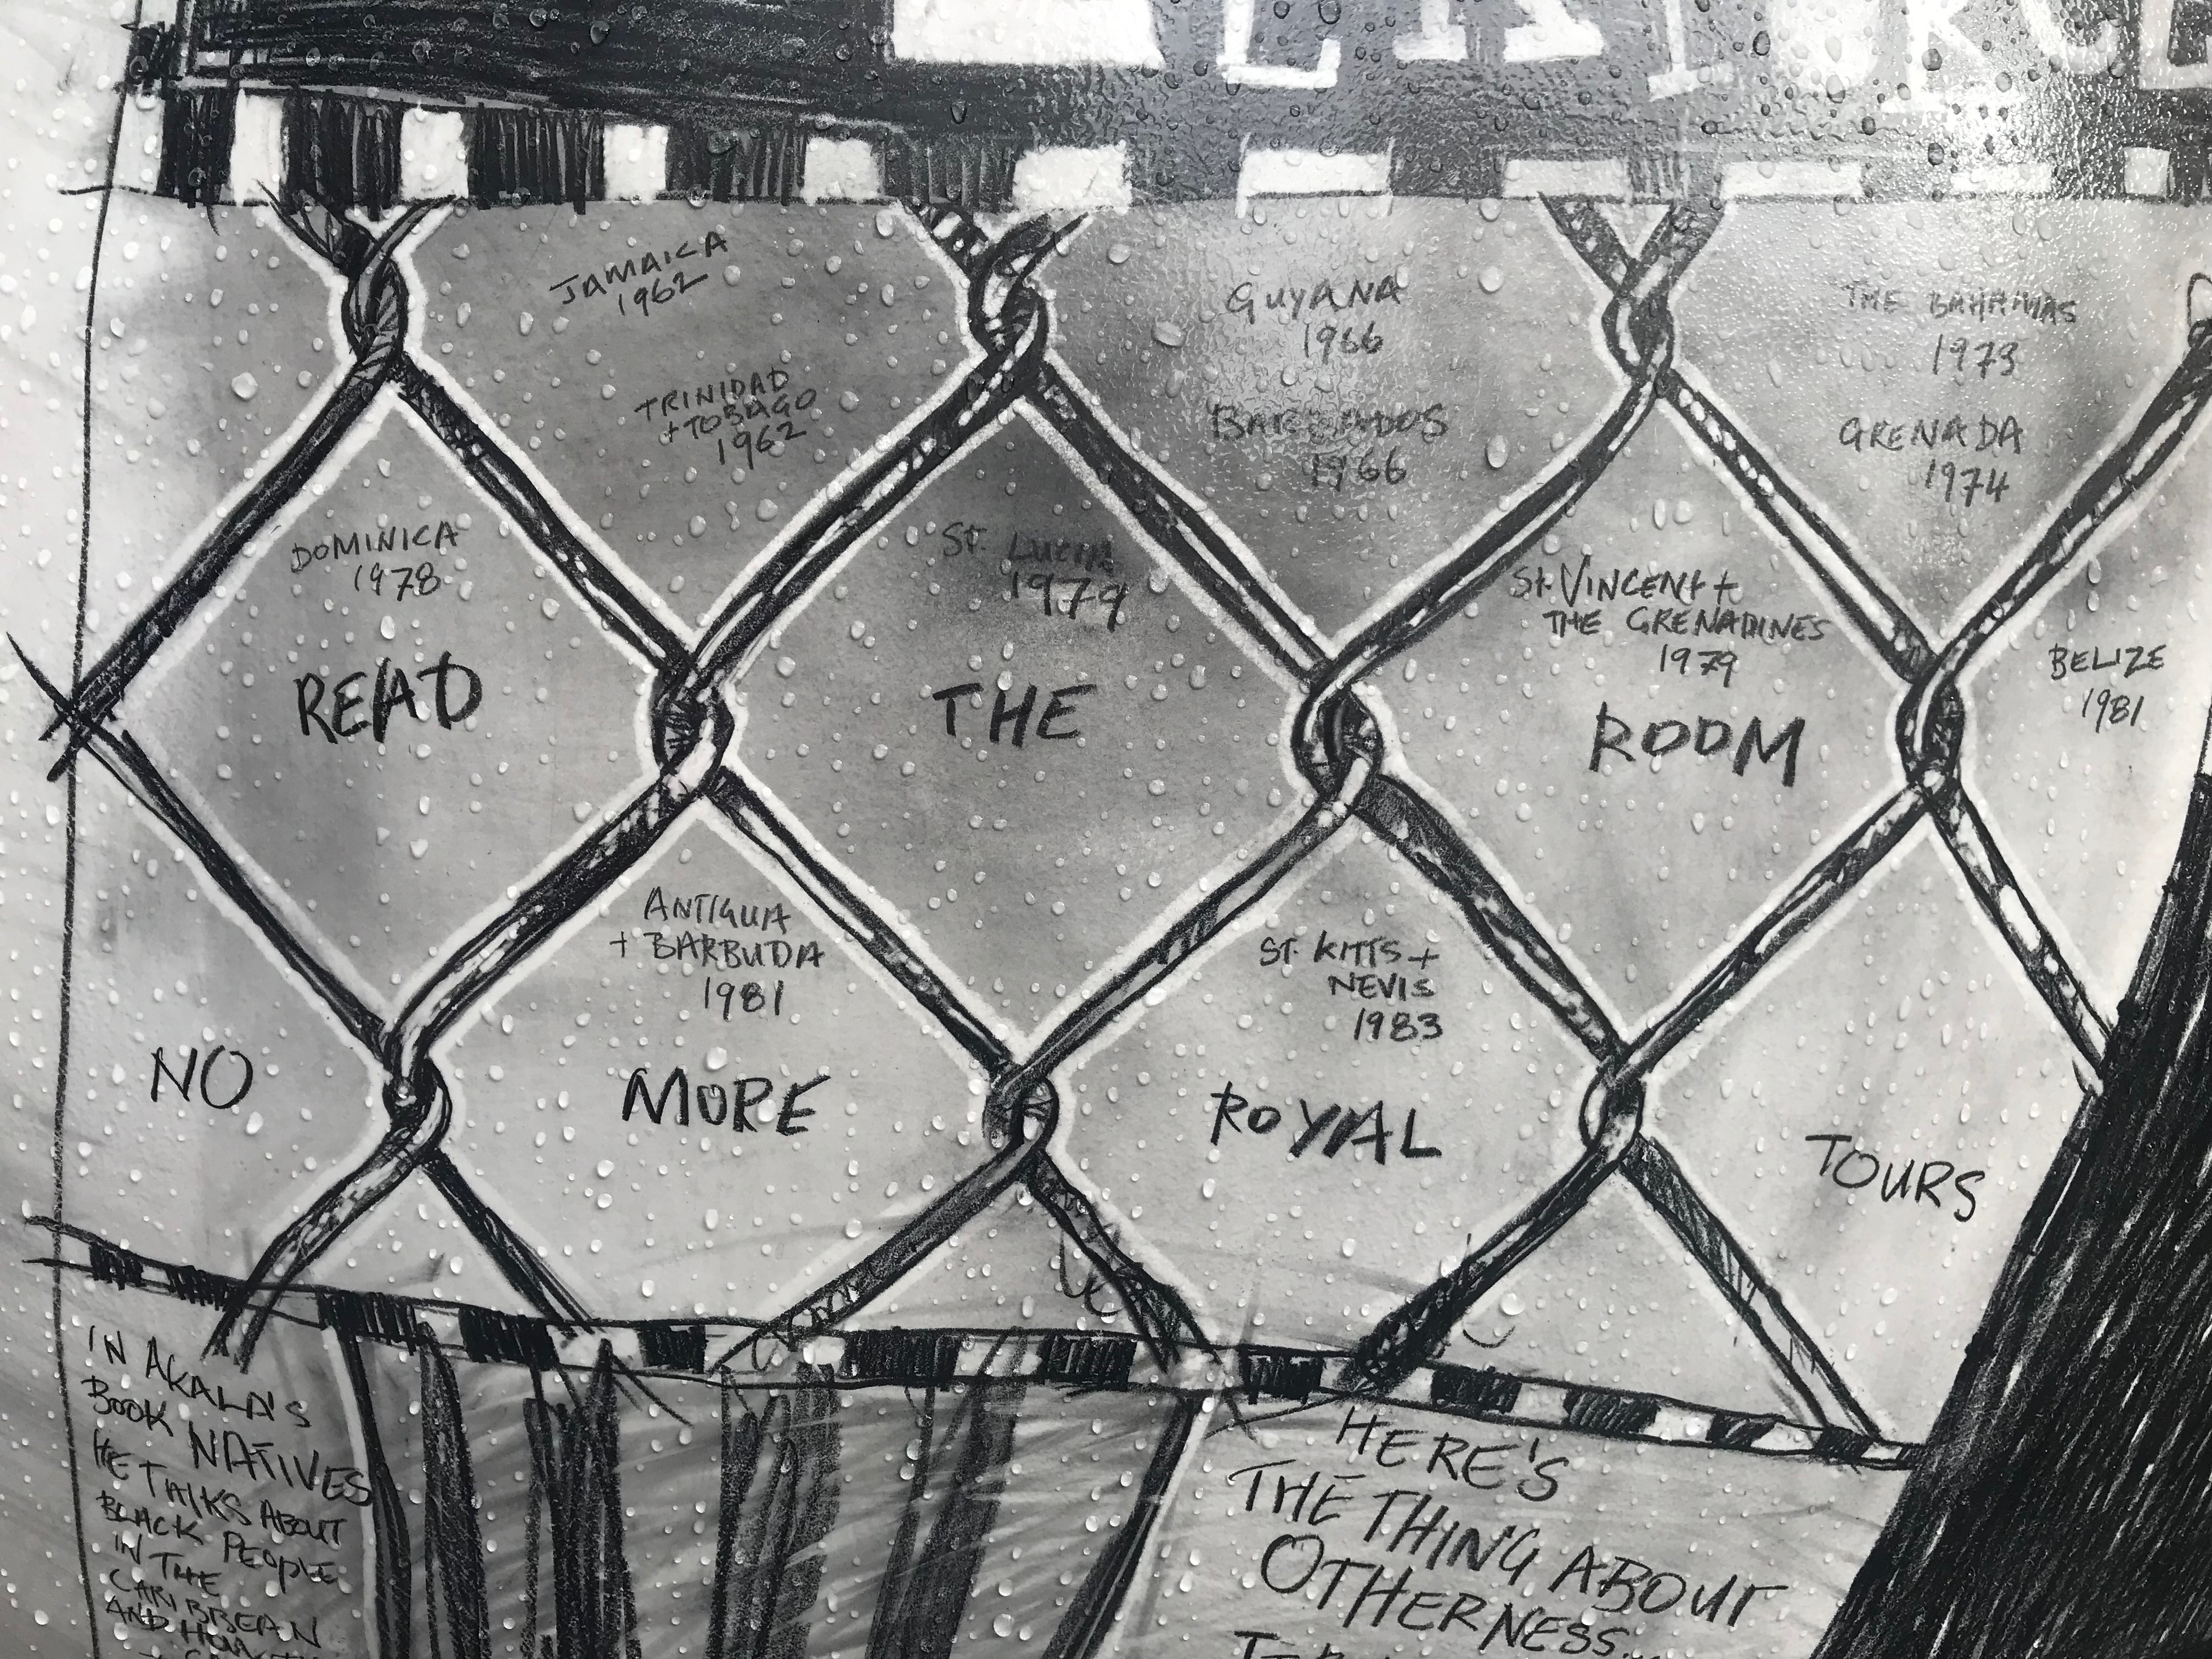 JAMAICA
1962
TRINIDAD
+TOBAGO
1962
GUYANA
1966
BARBADOS
1966
THE BAHAMAS
1973
GRENADA
1974
DOMINICA
1978
ST. LUCIA
1979
St. VINCENT +
THE GRENADINES
1979
BELIZE
1981
READ
THE
ROOM
ANTIGUA
+ BARBUDA
1981
ST. KITTS +
NEVIS
1983
NO
MORE
ROYAL
TOURS
IN AKALA'S
BOOK NATIVES
HE TALKS ABOUT
BLACK PEOPLE
IN THE
CARIBBEAN
AND HOW
HERE'S
THE THING ABOUT
OTHERNESS...